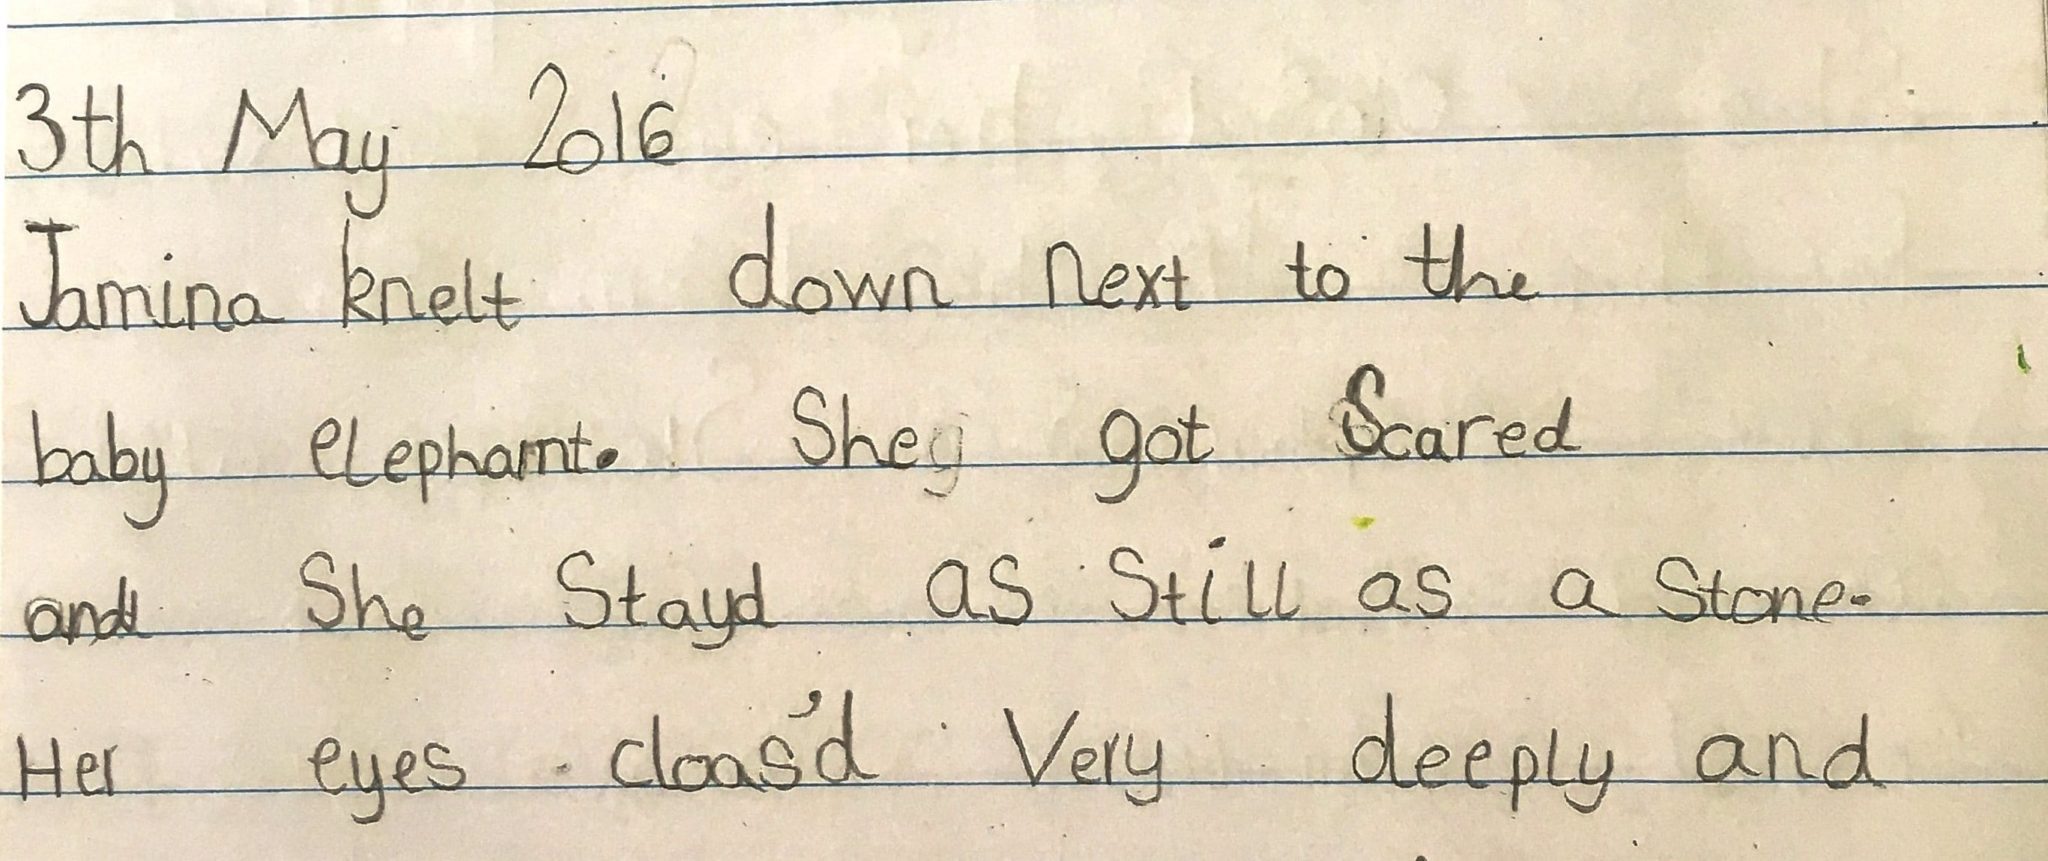 3th May 2016
Jamina knelt down next to the
baby elephamt. She got Scared
and She Stayd as Still as a Stone.
Her eyes cloas'd Very deeply and